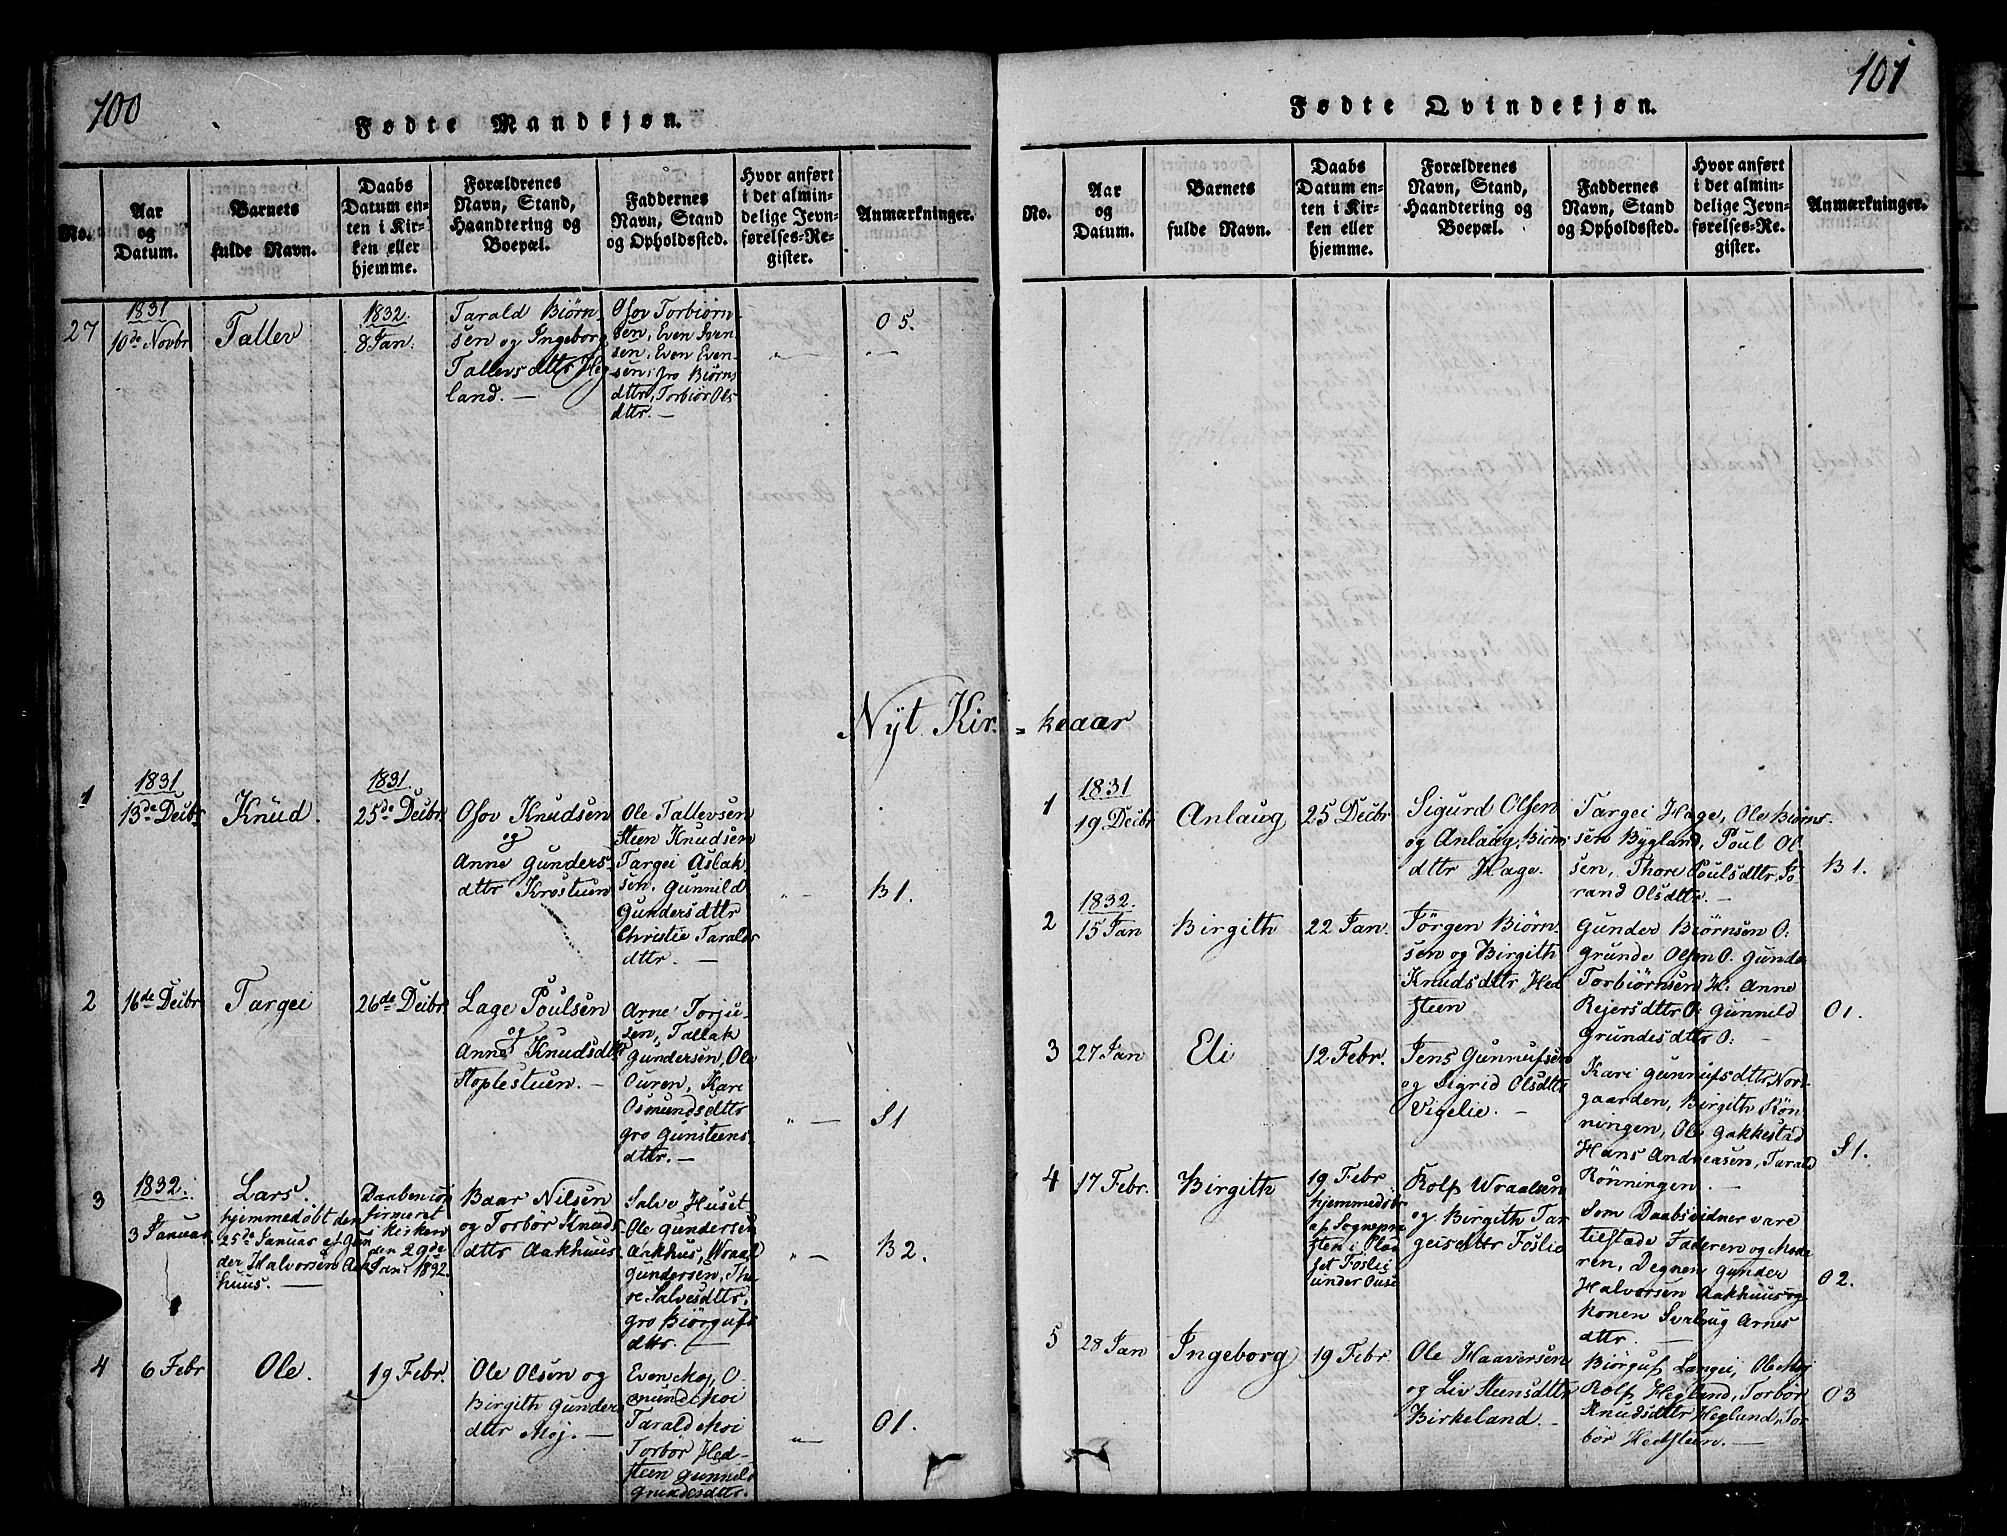 100
Fødte Mandkjøn.
No.
Aar
og
Datum.
Barnets
fulde Navn.
Daabs
Datum en-
ten i Kir-
ken eller
hjemme.
Forældrenes
Navn, Stand,
Haandtering og
Boepæl.
Faddernes
Navn, Stand
og Opholdssted.
Hvor anført
i det almin-
delige Jevn-
førelses-Re-
gister.
Anmærkninger.
27
1831
10de Novbr
Tallev
1832.
8 Jan.
Tarald Biørn
sen og Ingeborg
Tallevsdttr Heg
land. —
Osov Torbiørn-
sen, Even Iven-
sen, Even Even-
sen, Gro Biørns
dttr, Torbiør Ols
dttr. —
" —
—
O 5.
Nÿt Kir-
1
1831
13de Decbr
Knud.
1831.
25de Decbr
Osov Knudsen
og
Anne Gunders-
dttr Krostuen
Ole Tallevsen
Steen Knudsen
Targei Aslak-
sen, Gunnild
Gundersdttr
Christie Taralds
dttr. —
" —
B 1.
2
16de Decbr
Targei
26de Decbr
Lage Poulsen
og
Anne Knudsdttr
Stoplestuen. —
Arne Torju-
sen, Tallak
Gundersen, Ole
Ouren, Kari
Osmundsdttr
Gro Gunsteens-
dttr. —
" —
S 1
3
1832.
3 Januar
Lars.
hjemmedøbt den
25de Januar af Gun
der Halvorsen Aak
huus. —
Daaben con
firmeret
i Kirken
den 29de
Jan: 1832.
Baar Nilsen
og Torbør Knuds
dttr Aakhuus
Salve Huset
Ole Gundersen
Aakhus, Wraal
Gundersen, Tho
re Salvesdttr,
Gro Biørgufs
dttr. —
" —
B 2.
4
6 Febr
Ole.
19 Febr.
Ole Olsen og
Birgith Gunders
dttr Moj. —
Even Moj, O
smund Moi
Tarald Moi
Torbør Hed-
steen Gunnild
Grundesdttr.
" —
O 1.
101
Fødte Qvindekjøn.
No.
Aar
og
Datum.
Barnets
fulde Navn.
Daabs
Datum en-
ten i Kir-
ken eller
hjemme.
Forældrenes
Navn, Stand,
Haandtering og
Boepæl.
Faddernes
Navn, Stand
og Opholdssted.
Hvor anført
i det almin-
delige Jevn-
førelses-Re-
gister.
Anmærkninger.
= keaar
1
1831
19 Decbr
Anlaug
25 Decbr
Sigurd Olsen
og Anlaug Biørns
dttr Hage.
Targei Hage, Ole Biørns-
sen Bygland, Poul Ol
sen, Thore Poulsdttr, Jo
rand Olsdttr. —
B 1.
2
1832.
15 Jan
Birgith
22 Jan.
Jørgen Biørn
sen og Birgith
Knudsdttr Hed
steen
Gunder Biørnsen O:
Grunde Olsen O. Gunde
Torbiørnsen H: Anne
Rejersdttr O: Gunnild
Grundesdttr O: —
O 1.
3
27 Jan
Eli
12 Febr.
Jens Gunnufsen
og Sigrid Olsdttr
Vigelie. —
Kari Gunnufsdttr Nord
gaarden, Birgith Røn-
ningen, Ole Gakkestad
Hans Andreasen, Tarald
Rønningen. —
S 1.
4
17 Febr.
Birgith
19 Febr
hjemmedøbt
af Sognepræ
sten i Plad
set Foslie
under Ouse
Rolf Wraalsen
og Birgith Tar
geisdttr Foslie
Som Daabsvidner vare
tilstæde Faderen og Mode
ren, Degnen Gunder
Halvorsen Aakhuus og
Konen Svalaug Arnes
dttr. —
O 2.
5
28 Jan
Ingeborg
19 Febr
Ole Haaversen
og Liv Steensdttr
Birkeland. —
Biørguf Langei, Ole Moi
Rolf Hegland, Torbør
Knudsdttr Hegland, Tor
bør Hedsteen. —
O 3